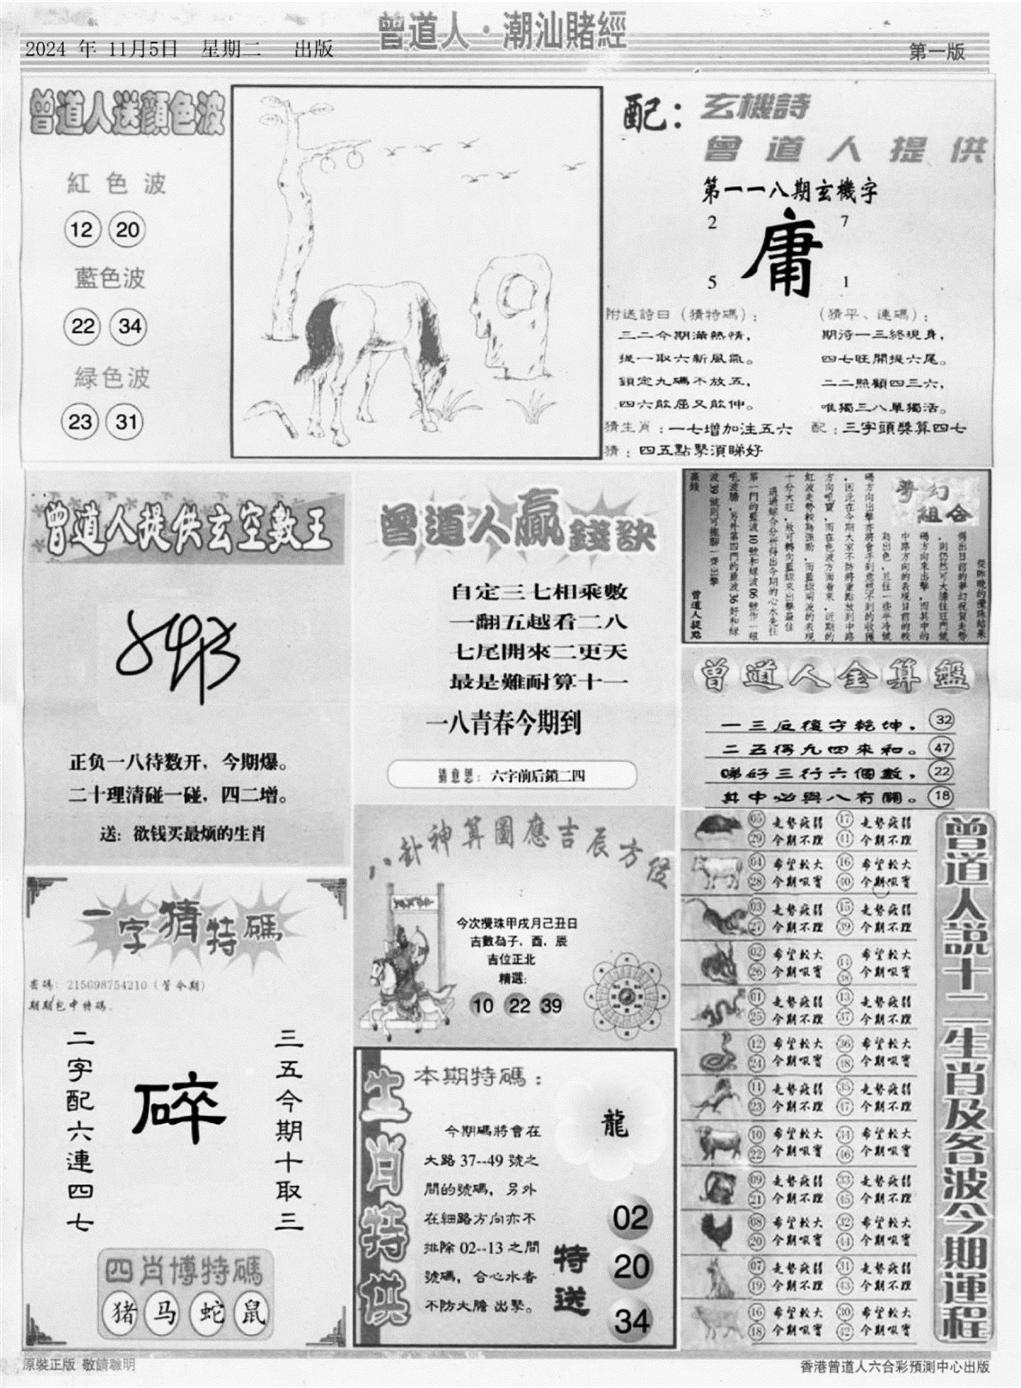 曾道人·潮汕賭經
2024 年 11月5日 星期二 出版
第一版
曾道人送顏色波
紅色波
12 20
藍色波
22 34
綠色波
23 31
配：玄機詩
曾道人提供
第一一八期玄機字
2 7
庸
5 1
附送詩曰（猜特碼）：
三二今期滿熱情，
提一取六新風氣。
鎖定九碼不放五，
四六欲屈又欲伸。
猜生肖：一七增加注五六
猜：四五點擊須睇好
（猜平、連碼）：
期待一三終現身，
四七旺開提六尾。
二二照顧四三六，
唯獨三八單獨活。
配：三字頭獎算四七
曾道人提供玄空數王
正负一八待数开，今期爆。
二十理清碰一碰，四二增。
送：欲钱买最烦的生肖
曾道人贏錢訣
自定三七相乘數
一翻五越看二八
七尾開來二更天
最是難耐算十一
一八青春今期到
猜意思：六字前后鎖二四
夢幻組合
曾道人提點
曾道人金算盤
一三反復守乾坤，32
二五得九四來和。47
睇好三行六個數，22
其中必與八有關。18
一字猜特碼
密碼：215698754210（管今期）
期期包中特碼.
二字配六連四七
碎
三五今期十取三
四肖博特碼
猪 马 蛇 鼠
八卦神算圖應吉辰方位
今次攪珠甲戌月己丑日
吉數為子，酉，辰
吉位正北
精選：
10 22 39
生肖特供
本期特碼：
今期碼將會在
大路 37--49 號之
間的號碼，另外
在細路方向亦不
排除 02--13 之間
號碼，合心水者
不防大膽 出擊。
龍
02
20
34
特送
曾道人説十二生肖及各波今期運程
05 走勢疲弱 17 走勢疲弱
29 今期不理 41 今期不理
04 希望較大 16 希望較大
28 今期吼實 40 今期吼實
03 走勢疲弱 15 走勢疲弱
27 今期不理 39 今期不理
02 希望較大 希望較大
26 今期吼實 38 今期吼實
01 走勢疲弱 13 走勢疲弱
25 今期不理 37 今期不理
12 希望較大 36 希望較大
24 今期吼實 48 今期吼實
11 走勢疲弱 35 走勢疲弱
23 今期不理 47 今期不理
10 希望較大 34 希望較大
22 今期吼實 46 今期吼實
09 走勢疲弱 33 走勢疲弱
21 今期不理 45 今期不理
08 希望較大 32 希望較大
20 今期吼實 44 今期吼實
07 走勢疲弱 31 走勢疲弱
19 今期不理 43 今期不理
希望較大 30 希望較大
18 今期吼實 42 今期吼實
原裝正版 敬請聰明
香港曾道人六合彩預測中心出版